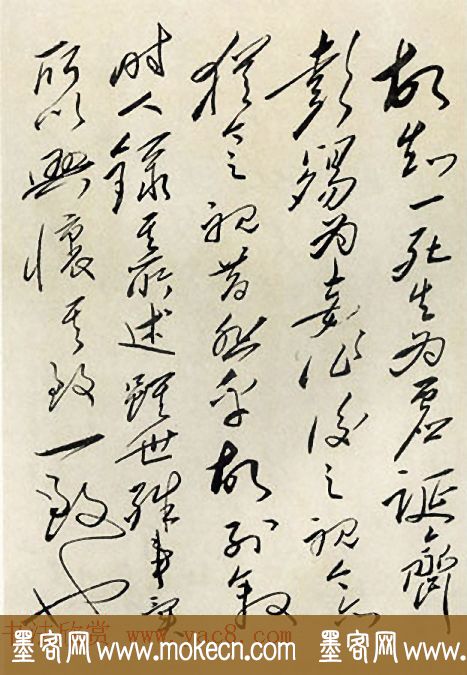 故知一死生为虚诞齐
彭殇为妄作後之視今亦
猶今之視昔乎故列叙
时人錄其所述雖世殊事異
所以興懷其致一致也
书法欣赏 www.yac8.com
墨客网 www.mokecn.com 墨客网 www.m